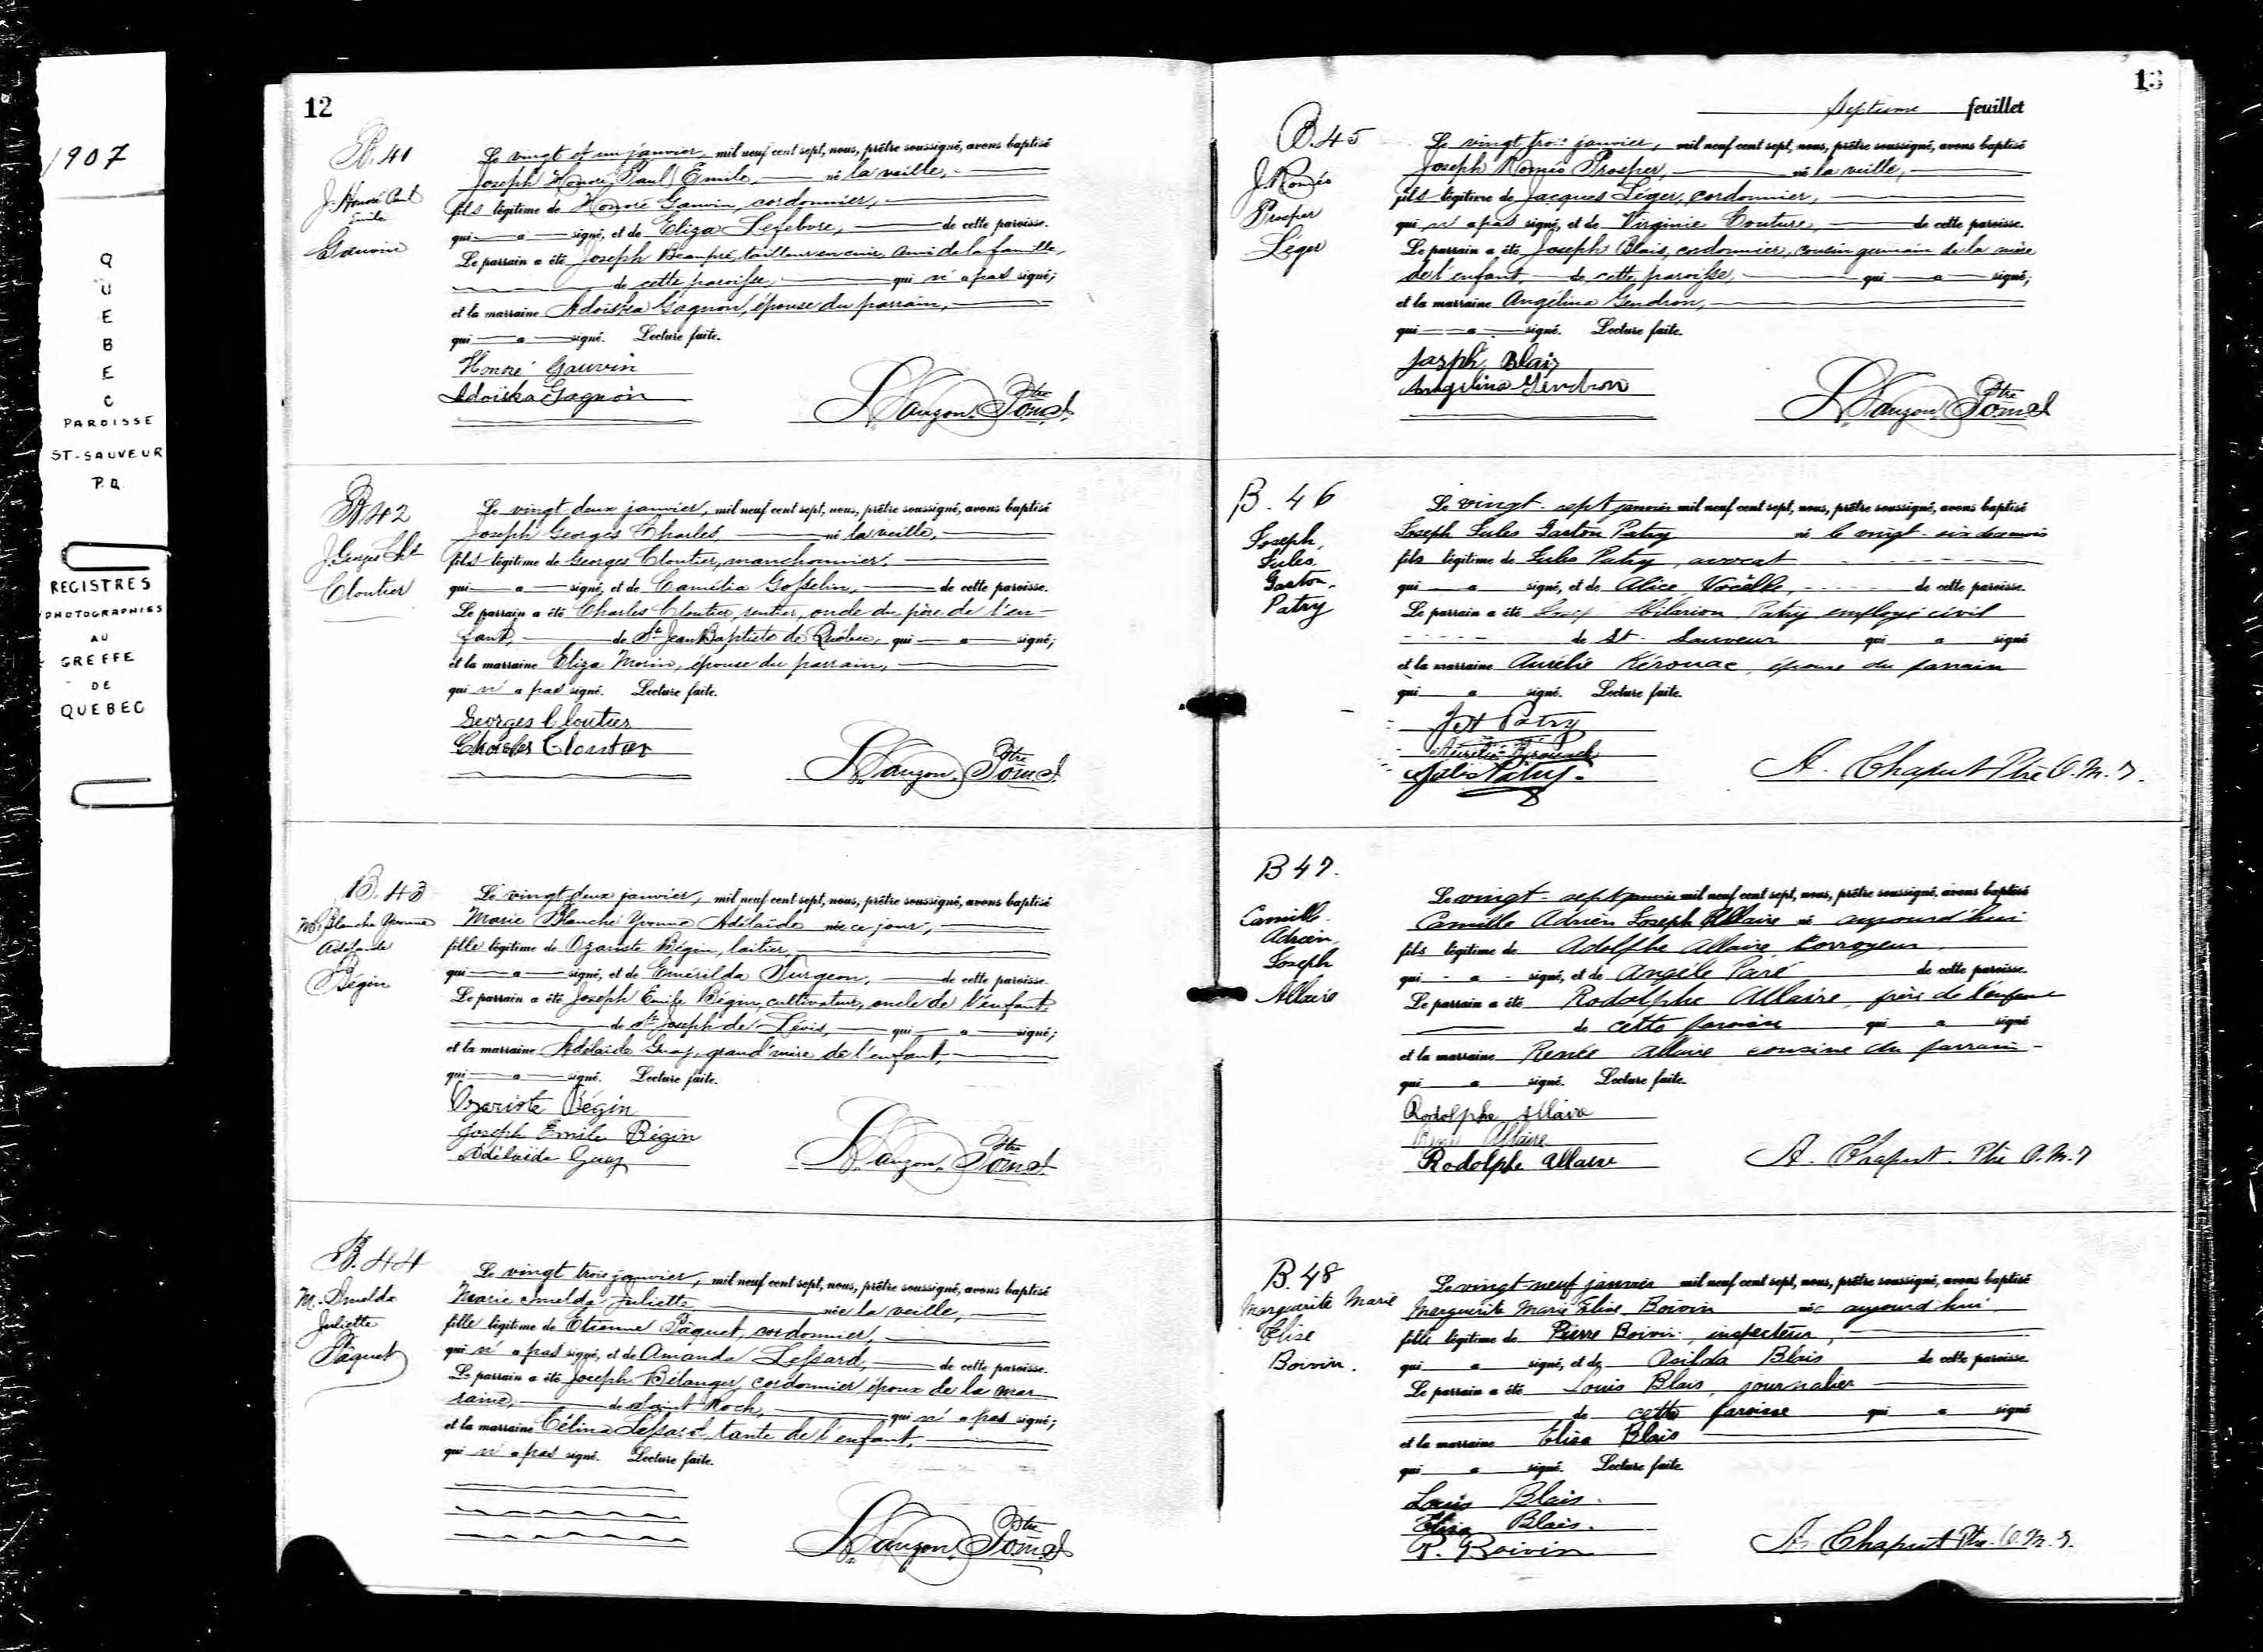 1907
QUEBEC
PAROISSE
ST-SAUVEUR
P.Q
REGISTRES
PHOTOGRAPHIES
AU
GREFFE
DE
QUEBEC
12
B. 41
J. Honoré Paul
Emile
Gauvin
Le vingt et un janvier, mil neuf cent sept, nous, prêtre soussigné, avons baptisé
Joseph Honoré Paul Emile, né la veille,
fils légitime de Honoré Gauvin, cordonnier,
qui a signé, et de Eliza Lefebvre, de cette paroisse.
Le parrain a été Joseph Beaupré, tailleur en cuir, ami de la famille,
de cette paroisse, qui n'a pas signé;
et la marraine Adoiska Gagnon, épouse du parrain,
qui a signé. Lecture faite.
Honoré Gauvin
Adoïska Gagnon
Ptre O.M.I.
B. 42
J. Georges
Cloutier
Le vingt-deux janvier, mil neuf cent sept, nous, prêtre soussigné, avons baptisé
Joseph Georges Charles, né la veille,
fils légitime de Georges Cloutier, manchonnier,
qui a signé, et de Camélia Gosselin, de cette paroisse.
Le parrain a été Charles Cloutier, rentier, oncle du père de l'en-
fant, de St Jean Baptiste de Québec, qui a signé;
et la marraine Eliza Morin, épouse du parrain,
qui n'a pas signé. Lecture faite.
Georges Cloutier
Charles Cloutier
Ptre O.M.I.
B. 43
M. Blanche Yvonne
Adélaïde
Bégin
Le vingt deux janvier, mil neuf cent sept, nous, prêtre soussigné, avons baptisé
Marie Blanche Yvonne Adélaïde née ce jour,
fille légitime de Ozariste Bégin, laitier,
qui a signé, et de Emérilda Turgeon, de cette paroisse.
Le parrain a été Joseph Emile Bégin, cultivateur, oncle de l'enfant,
de St Joseph de Lévis, qui a signé;
et la marraine Adélaïde Guay, grand'mère de l'enfant,
qui a signé. Lecture faite.
Ozariste Bégin
Joseph Emile Bégin
Adélaïde Guay
Ptre O.M.I.
B. 44
M. Imelda
Juliette
Pâquet
Le vingt trois janvier, mil neuf cent sept, nous, prêtre soussigné, avons baptisé
Marie Imelda Juliette née la veille,
fille légitime de Etienne Pâquet, cordonnier,
qui n'a pas signé, et de Amanda Lessard, de cette paroisse.
Le parrain a été Joseph Bélanger, cordonnier époux de la mar
raine, de Saint Roch, qui n'a pas signé;
et la marraine Célina Lessard, tante de l'enfant,
qui n'a pas signé. Lecture faite.
Ptre O.M.I.
13
Septième feuillet
B. 45
J. Roméo
Prosper
Léger
Le vingt trois janvier, mil neuf cent sept, nous, prêtre soussigné, avons baptisé
Joseph Roméo Prosper, né la veille,
fils légitime de Jacques Léger, cordonnier,
qui n'a pas signé, et de Virginie Couture, de cette paroisse.
Le parrain a été Joseph Blais, cordonnier, cousin germain de la mère
de l'enfant, de cette paroisse, qui a signé;
et la marraine Angélina Gendron,
qui a signé. Lecture faite.
Joseph Blais
Angelina Gendron
Ptre O.M.I.
B. 46
Joseph,
Jules,
Gaston,
Patry
Le vingt-sept janvier mil neuf cent sept, nous, prêtre soussigné, avons baptisé
Joseph Jules Gaston Patry né le vingt-six du mois
fils légitime de Jules Patry, avocat
qui a signé, et de Alice de cette paroisse.
Le parrain a été Hilarion Patry employé civil
de St. Sauveur qui a signé
et la marraine Aurélie Kérouac, épouse du parrain
qui a signé. Lecture faite.
J H Patry
Jules Patry
A. Chaput Ptre O.M.I.
B 47.
Camille
Adrien,
Joseph
Allaire
Le vingt-sept janvier mil neuf cent sept, nous, prêtre soussigné, avons baptisé
Camille Adrien Joseph Allaire né aujourd'hui
fils légitime de Adolphe Allaire, corroyeur
qui a signé, et de Angèle Paré de cette paroisse.
Le parrain a été Rodolphe Allaire, frère de l'enfant
de cette paroisse qui a signé
et la marraine Renée Allaire cousine du parrain
qui a signé. Lecture faite.
Rodolphe Allaire
Renée Allaire
Rodolphe Allaire
A. Chaput. Ptre O.M.I
B. 48
Marguerite Marie
Elise
Boivin.
Le vingt-neuf janvier mil neuf cent sept, nous, prêtre soussigné, avons baptisé
Marguerite Marie Elise Boivin née aujourd'hui
fille légitime de Pierre Boivin, inspecteur,
qui a signé, et de Blais de cette paroisse.
Le parrain a été Louis Blais, journalier
de cette paroisse qui a signé
et la marraine Eliza Blais
qui a signé. Lecture faite.
Louis Blais.
Eliza Blais.
P. Boivin
A. Chaput Ptre. O.M.I.